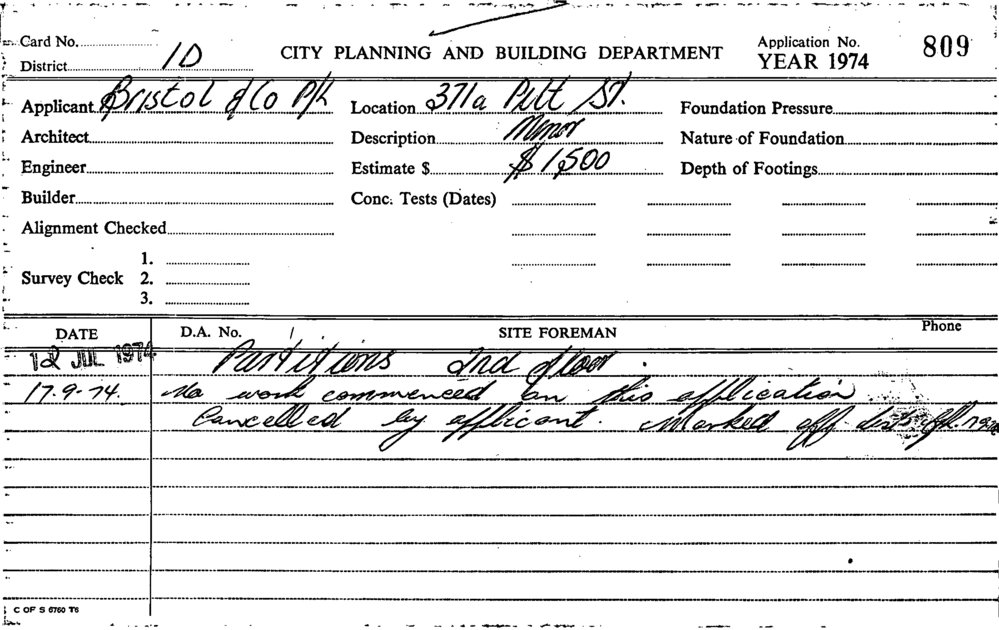 Card No.
District 1D
CITY PLANNING AND BUILDING DEPARTMENT
Application No. 809
YEAR 1974
Applicant Bristol & Co P/L Location 371a Pitt St. Foundation Pressure
Architect Description Minor Nature of Foundation
Engineer Estimate $ $1,500 Depth of Footings
Builder Conc. Tests (Dates)
Alignment Checked
1.
Survey Check 2.
3.
DATE D.A. No. SITE FOREMAN Phone
12 JUL 1974 Partitions 2nd floor.
17.9.74. No work commenced on this application
Cancelled by applicant. Marked off
C OF S 6760 T6